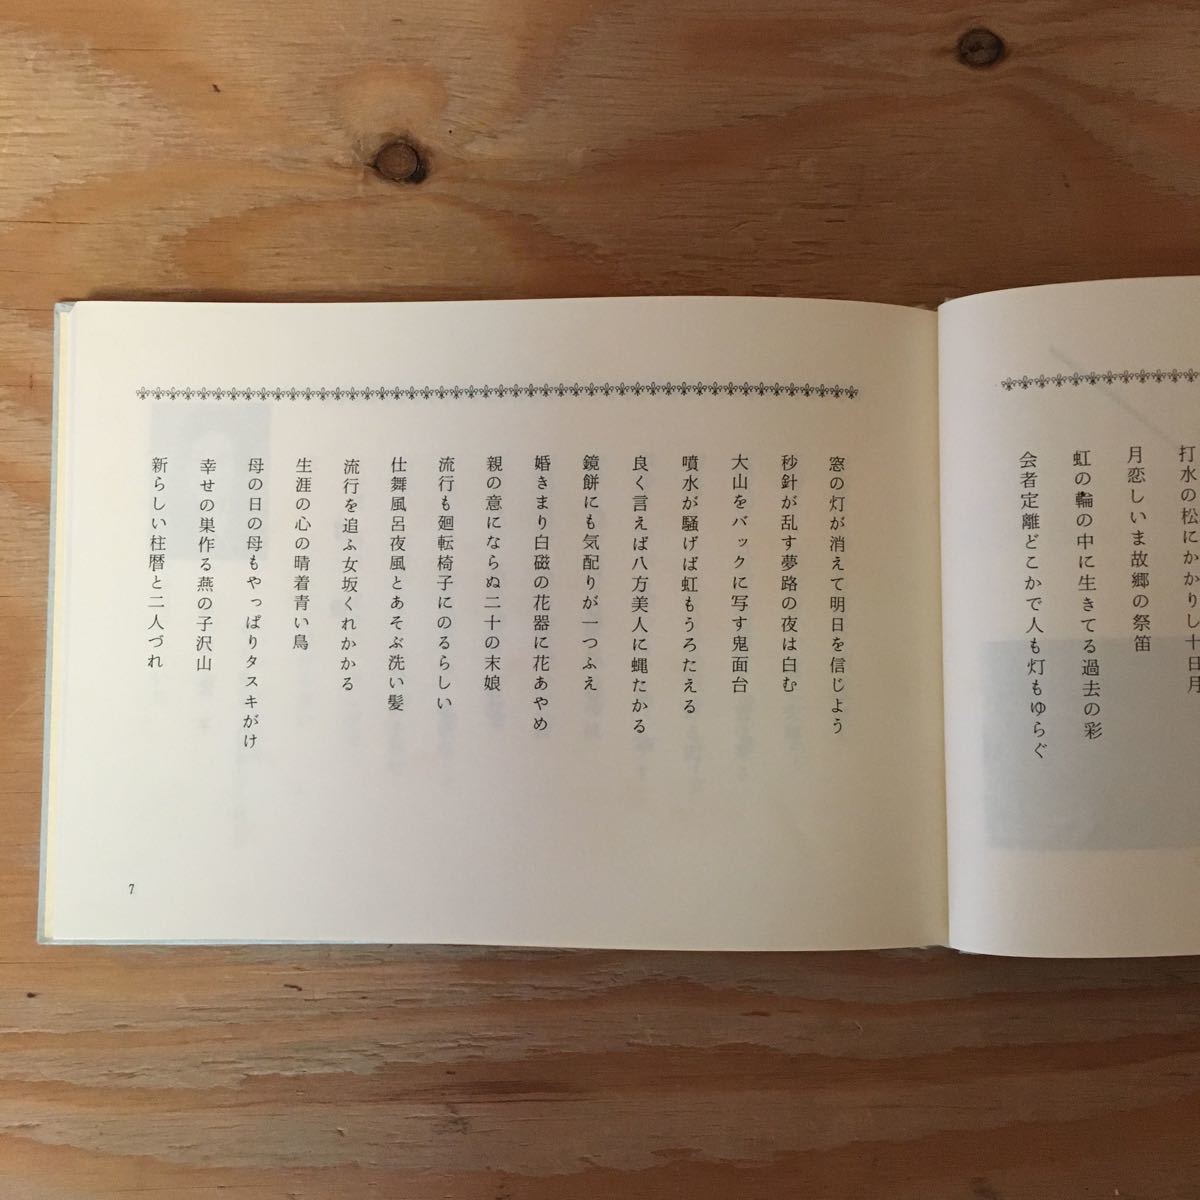 打水の松にかかりし十日月
月恋しいま故郷の祭笛
虹の輪の中に生きてる過去の彩
会者定離どこかで人も灯もゆらぐ
窓の灯が消えて明日を信じよう
秒針が乱す夢路の夜は白む
大山をバックに写す鬼面台
噴水が騒げば虹もうろたえる
良く言えば八方美人に蝿たかる
鏡餅にも気配りが一つふえ
婚きまり白磁の花器に花あやめ
親の意にならぬ二十の末娘
流行も廻転椅子にのるらしい
仕舞風呂夜風とあそぶ洗い髪
流行を追ふ女坂くれかかる
生涯の心の晴着青い鳥
母の日の母もやっぱりタスキがけ
幸せの巣作る燕の子沢山
新らしい柱暦と二人づれ
7